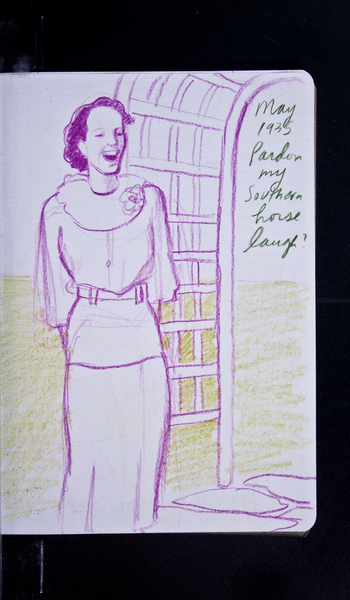 May
1935
Pardon
my
Southern
horse
laugh!